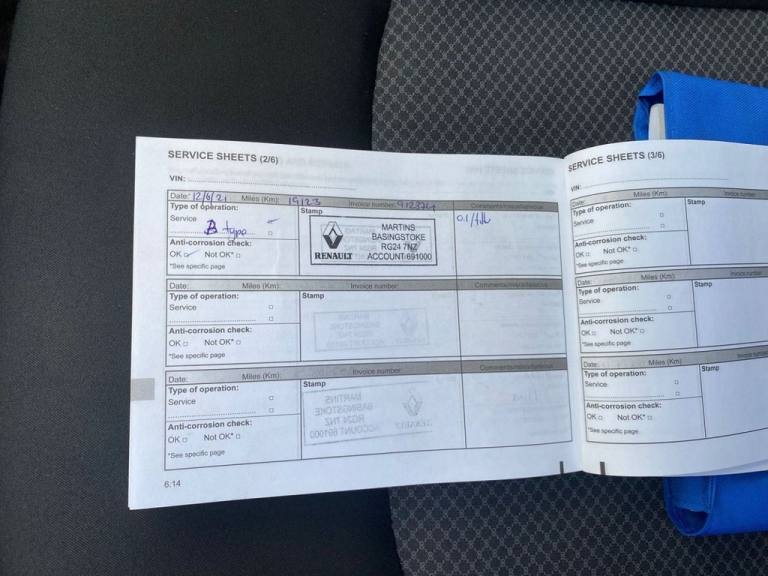 SERVICE SHEETS (2/6)
VIN:
Date: 12/6/21 Miles (Km): 19123 Invoice number: Comments/miscellaneous
Type of operation:
Service
B type
Anti-corrosion check:
OK Not OK*
*See specific page
Stamp
RENAULT
MARTINS
BASINGSTOKE
RG24 7NZ
ACCOUNT 691000
Date: Miles (Km): Invoice number: Comments/miscellaneous
Type of operation:
Service
Anti-corrosion check:
OK Not OK*
*See specific page
Stamp
Date: Miles (Km): Invoice number: Comments/miscellaneous
Type of operation:
Service
Anti-corrosion check:
OK Not OK*
*See specific page
Stamp
MARTINS
BASINGSTOKE
RG24 7NZ
ACCOUNT 691000
RENAULT
6:14
SERVICE SHEETS (3/6)
VIN:
Date: Miles (Km): Invoice number
Type of operation:
Service
Anti-corrosion check:
OK Not OK*
*See specific page
Stamp
Date: Miles (Km): Invoice number
Type of operation:
Service
Anti-corrosion check:
OK Not OK*
*See specific page
Stamp
Date: Miles (Km): Invoice number
Type of operation:
Service
Anti-corrosion check:
OK Not OK*
*See specific page
Stamp